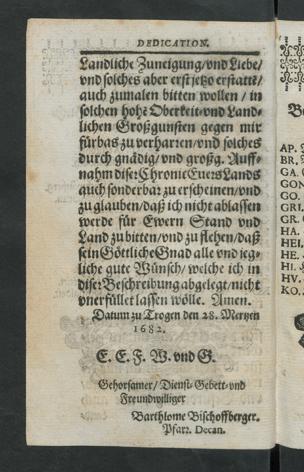 DEDICATION.
Landliche Zuneigung/vnd Liebe/
vnd solches aber erst jetzo erstattē/
auch zumalen bitten wollen / in
solchen hohē Oberkeit-vnd Land-
lichen Großgunsten gegen mir
fürbas zu verharren/ vnd solches
durch gnädig/ vnd großg. Auff-
nahm diser Chronic Euers Lands
auch sonderbar zu erscheinen/vnd
zu glauben/daß ich nicht ablassen
werde für Ewern Stand vnd
Land zu bitten/vnd zu flehen/daß
sein Göttliche Gnad alle vnd jeg-
liche gute Wünsch/ welche ich in
diser Beschreibung abgelegt/nicht
vnerfüllet lassen wölle. Amen.
Datum zu Trogen den 28. Mertzen
1682.
E. E. F. W. vnd G.
Gehorsamer/ Dienst- Gebett- vnd
Freundwilliger
Barthlome Bischoffberger.
Pfarr. Decan.
AP.
BR.
GA.
GO.
GO.
GRI.
GR.
HA.
HEI.
HE.
HI.
HV.
KO.